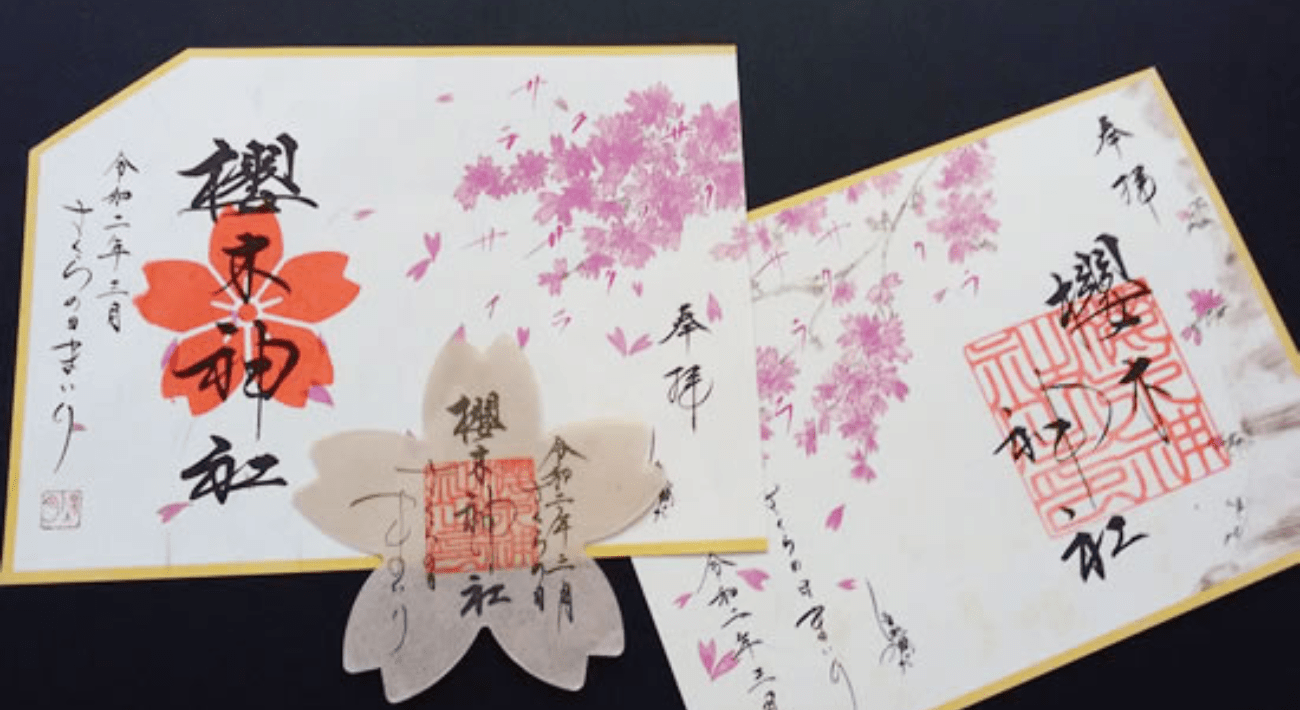 奉拝
櫻木神社
令和二年三月
さくらの日まいり
サ
ク
ラ
サ
ク
サ
イ
ラ
櫻木神社
令和二年三月
さくらの日
まいり
奉拝
櫻木神社
さくらの日まいり
令和二年三月
サ
ク
ラ
ク
ラ
ラ